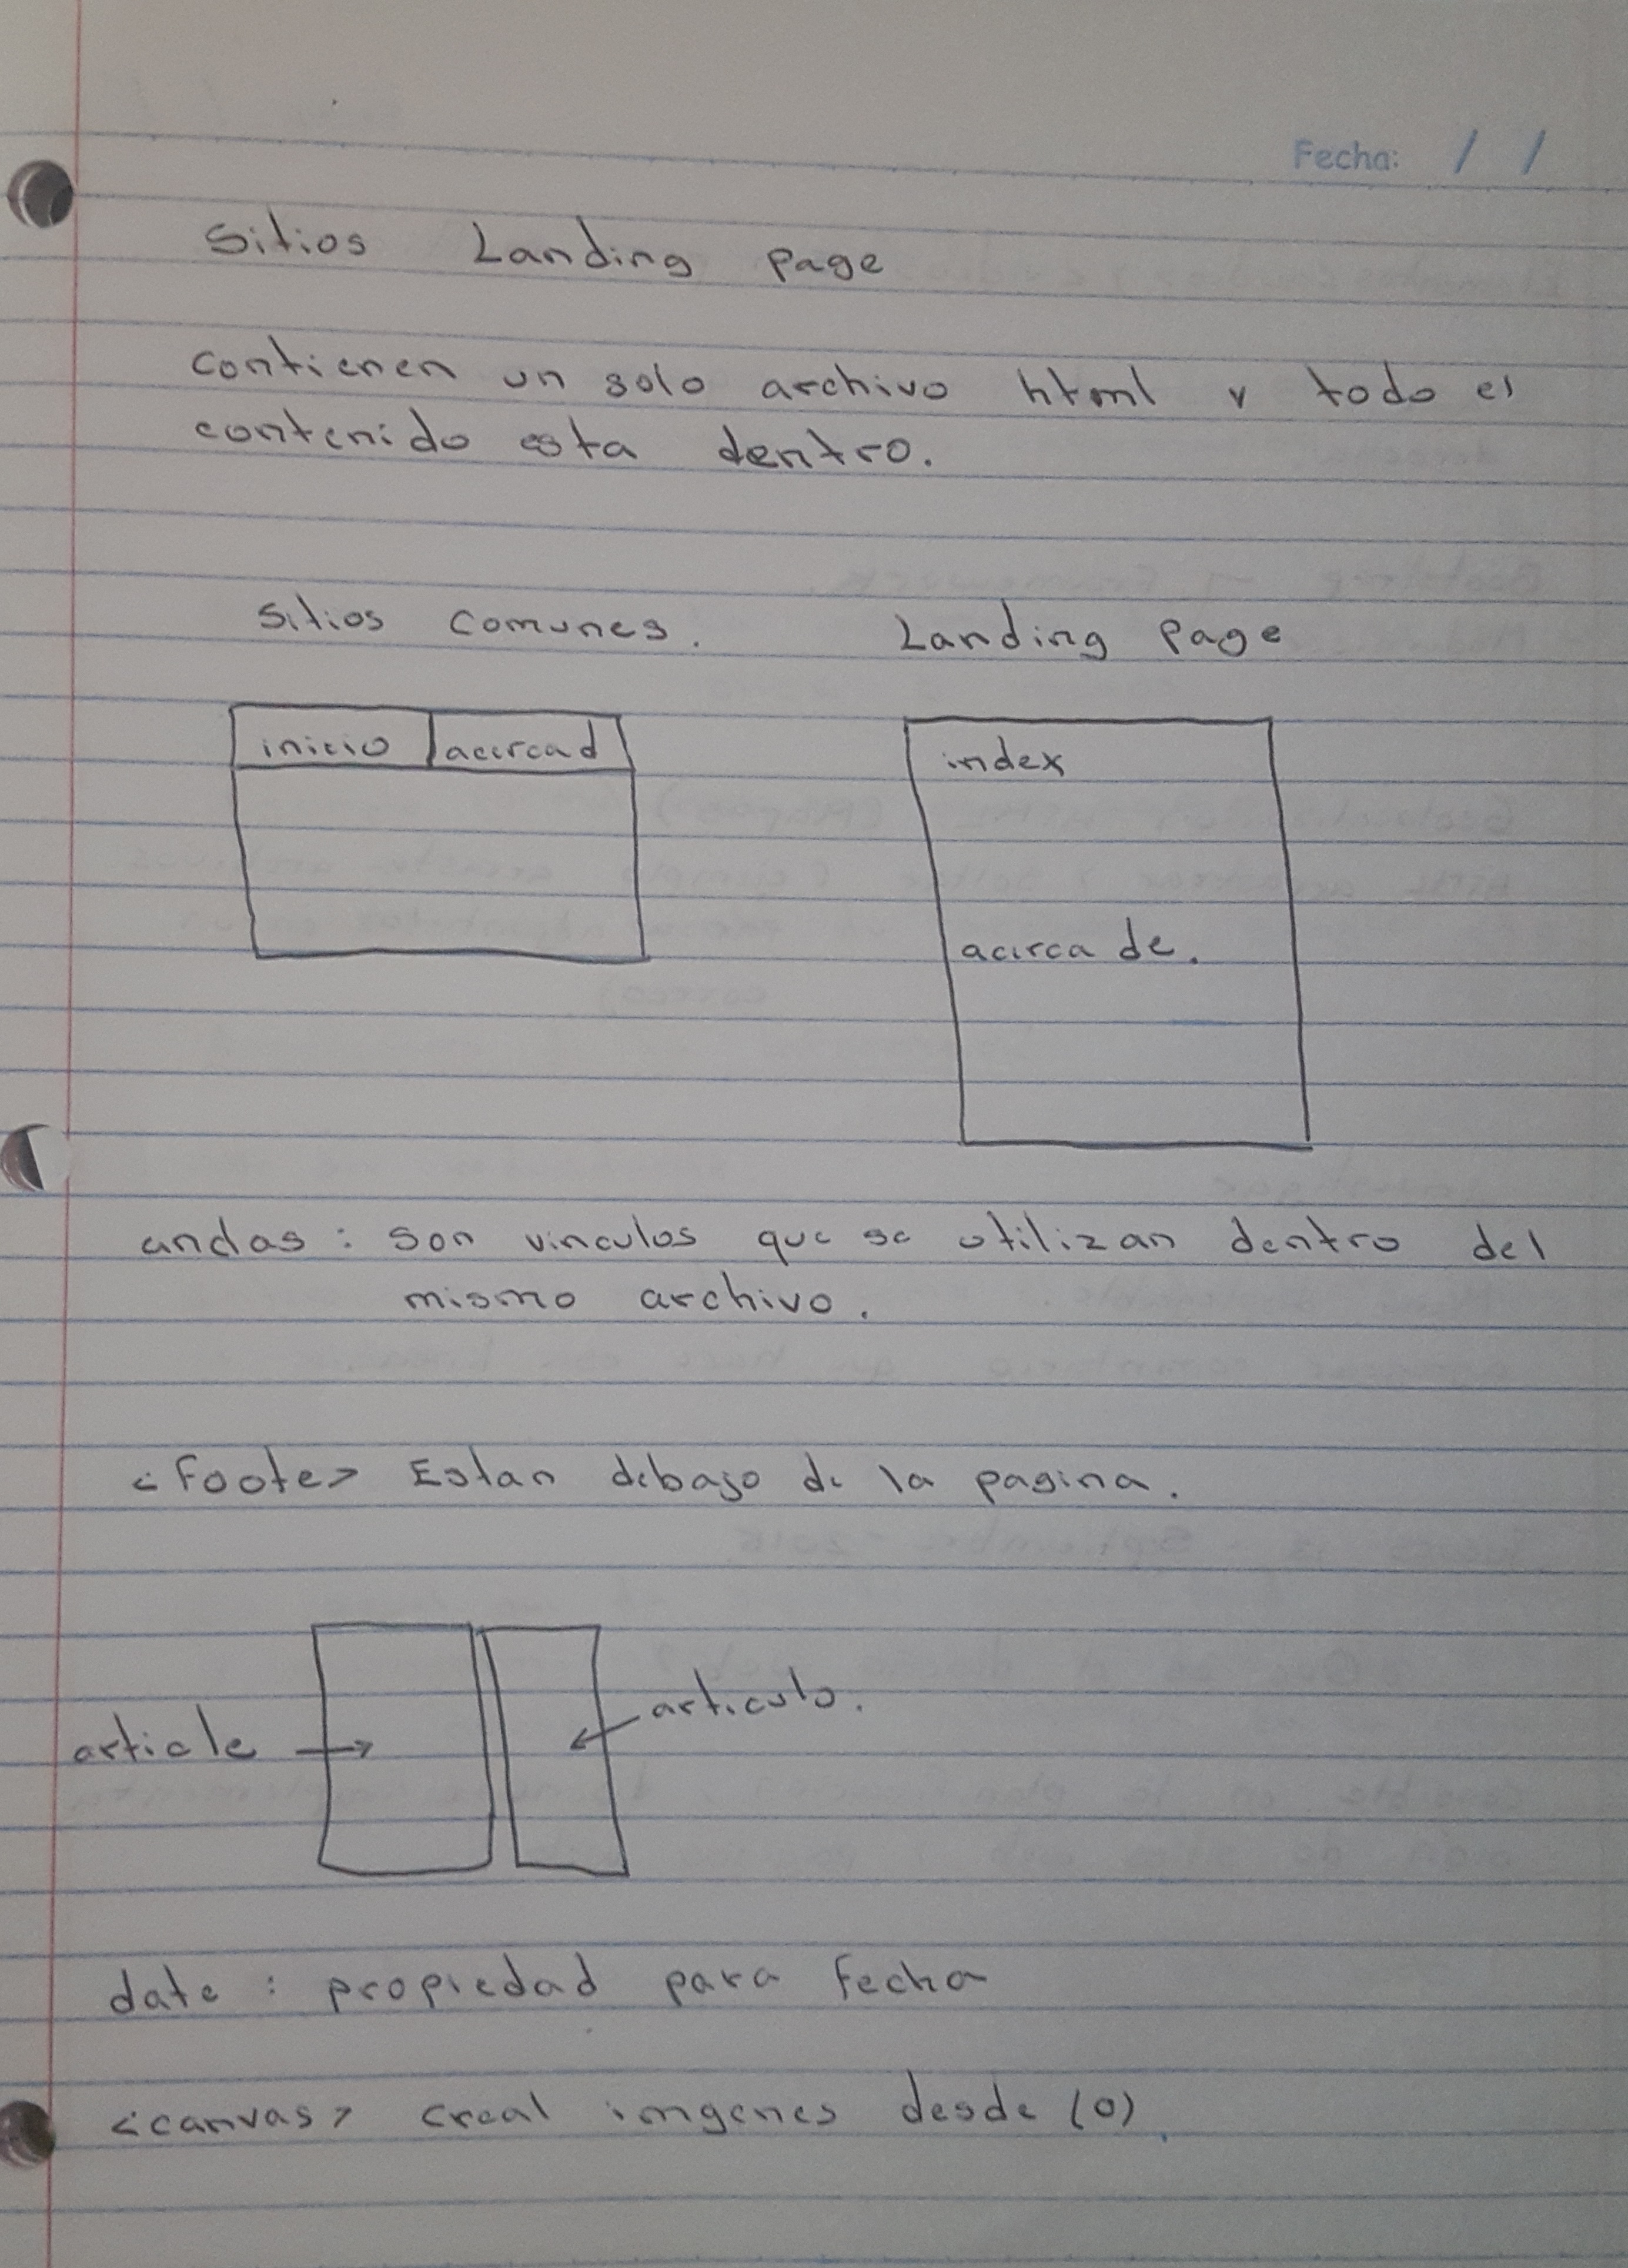 Fecha: / /
Sitios Landing page
contienen un solo archivo html y todo el
contenido esta dentro.
Sitios comunes. Landing Page
inicio acercad
index
acerca de.
anclas: son vinculos que se utilizan dentro del
mismo archivo.
<Foote> Estan debajo de la pagina.
articulo.
article
date : propiedad para fecha
<canvas> creal imgenes desde (0)